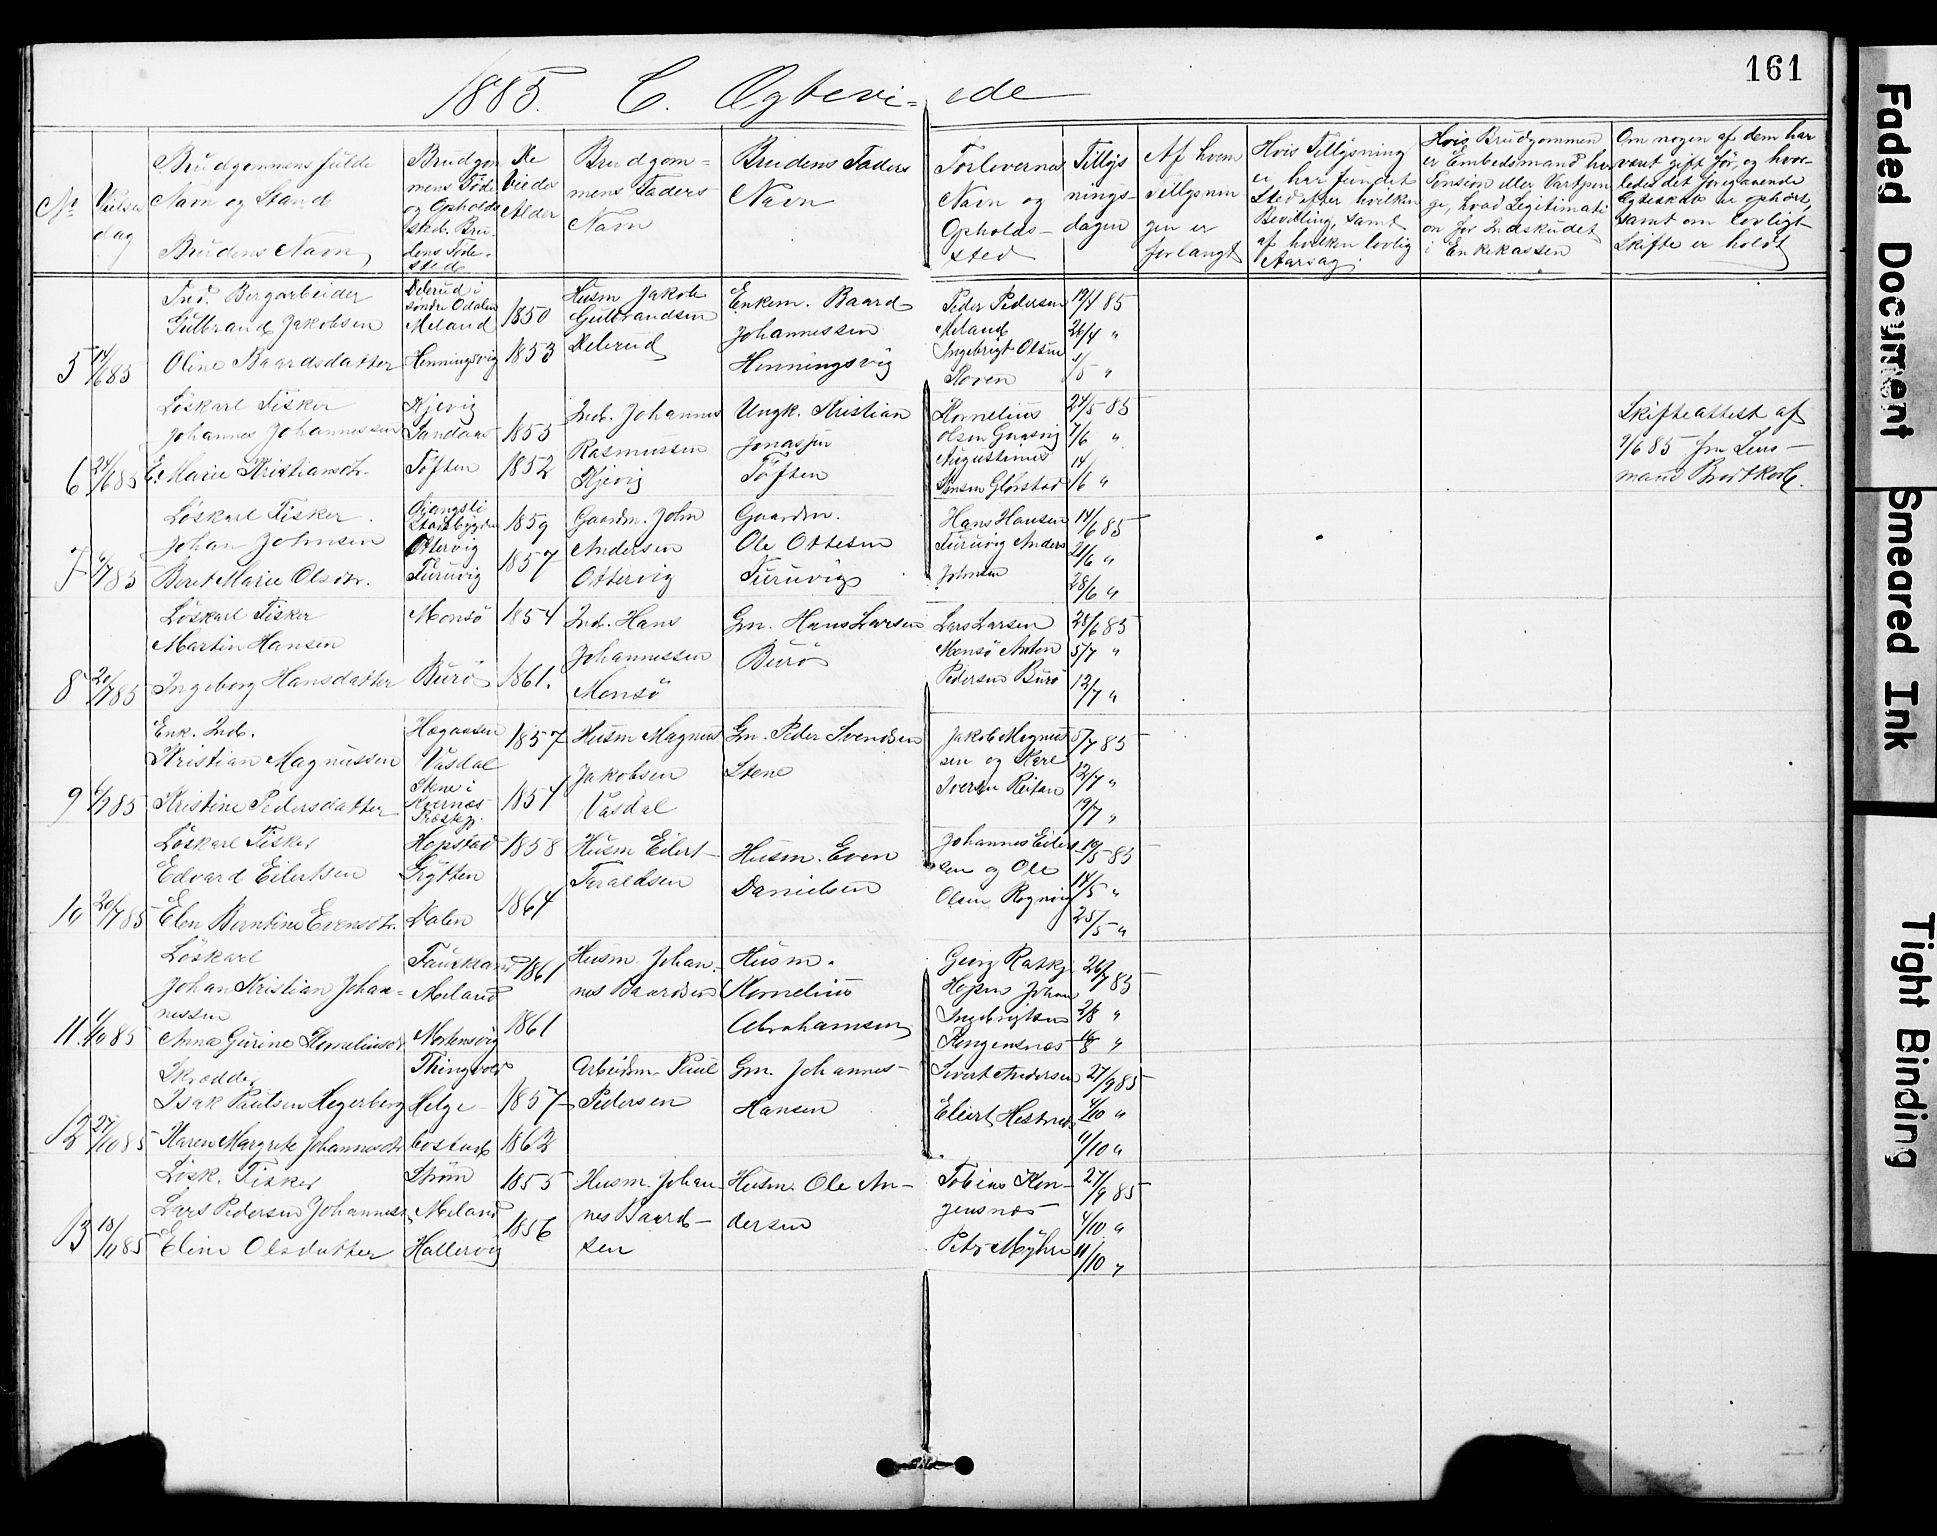 161
1885. C. Ægtevi= ede
No
Vielses
dag
Brudgommens fulde
Navn og Stand
Brudens Navn
Brudgom
mens Føde
og Opholds
sted. Bru-
dens Føde-
sted
De
Viedes
Alder
Brudgom=
mens Faders
Navn
Brudens Faders
Navn
Forlovernes
Navn og
Opholds-
sted
Tillys
nings-
dagen
Af hvem
Tillysnin
gen er
forlangt
Hvis Tillysning
ei har fundet
Sted efter hvilken
Bevilling, samt
af hvilken lovlig
Aarsag.
Hvis Brudgommen
er Embedsmand har
Pension eller Vartpen
ge, hvad Legitimati
on for Indskudet
i Enkekassen
Om nogen af dem har
været gift før, og hvor-
ledes det foregaaende
Egteskab er ophørt,
samt om lovligt
Skifte er holdt
5
14/6 85
Ind. Bergarbeider
Gulbrand Jakobsen
Oline Baardsdatter
Delerud i
søndre Odalen
Meland
Henningsvig
1850
1853
Husm Jakob
Gulbrandsen
Delerud
Enkem. Baard
Johannessen
Henningsvig
Peder Pedersen
Meland
Ingebrigt Olsen
Roven
19/4 85
26/4 "
1/5 "
6
24/6 85
Löskarl Fisker
Johannes Johannessen
E. Marie Kristiansdtr.
Kjevig
Sandaas
Töften
1853
1852
Ind. Johannes
Rasmussen
Kjevig
Ungk. Kristian
Jonassen
Töften
Kornelius
Olsen
Augustinus
Jensen Glörstad
24/5 85
7/6 "
14/6 "
Skifteattest af
9/6 85 fra Lens-
mand Brodtkorb.
7
5/7 85
Löskarl Fisker.
Johan Johnsen
Beret Marie Olsdtr.
Gjangsli
Stadsbygden
Ottervig
Furuvig
1859
1857
Gaardm. John
Andersen
Ottervig
Gaardm.
Ole Ottesen
Furuvig
Hans Hansen
Furuvig Anders
Johnsen
14/6 85
21/6 "
28/6 "
8
20/7 85
Löskarl Fisker
Martin Hansen
Ingeborg Hansdatter
Monsö
Burö
1854
1861.
Ind. Hans
Johannessen
Monsö
Gm. Hans Larsen
Burö
Lars Larsen
Monsö Anton
Pedersen Burö
28/6 85
5/7 "
12/7 "
9
Enk. Ind.
Kristian Magnussen
Kristine Pedersdatter
Hegaasen
Vasdal
Stene i
Kvernes
Prestgj.
1857
1854
Husm Magnus
Jakobsen
Vasdal
Gm. Peder Svendsen
Stene
Jakob Magnus
sen og Kare
Iversen Reitan
5/7 85
12/7 "
19/7 "
10
20/7 85
Löskarl Fisker
Edvard Eilertsen
Elen Berntine Evensdtr.
Hopstad
Grytten
Dalen
1858
1864
Husm Eilert
Taraldsen
Husm. Even
Danielsen
Johannes Eilert
sen og Ole
Olsen Rognvig
10/5 85
14/5 "
25/5 "
11.
Löskarl
Johan Kristian Johan=
nessen
Anna Gurine Korneliusdr
Fauskland
Meland
Mortensvig
1861
1861
Husm. Johan.
nes Baardsen
Husm.
Kornelius
Abrahamsen
Georg Ratkj
Hopen Johan
Ingebrigtsen
Kongensnæs
26/7 85
2/8 "
16/8 "
12
27/10 85
Skrædder
Isak Paulsen Hegerberg
Karen Margrete Johannesdtr
Thingvold
Helge-
bostad
1857
1862
Arbeidsm. Paul
Pedersen
Gm. Johannes
Hansen
Sivert Andersen
Eliert Hestnes
27/9 85
4/10 "
11/10 "
13
18/11 85
Lösk. Fisker
Lars Pedersen Johannessen
Eline Olsdatter
Ström
Meland
Hallervig
1855
1856
Husm. Johan-
nes Baard-
sen
Husm. Ole An-
dersen
Tobias Kon-
gensnæs
Peter Myhre
27/9 85
4/10 "
11/10 "
Faded Document
Smeared Ink
Tight Binding